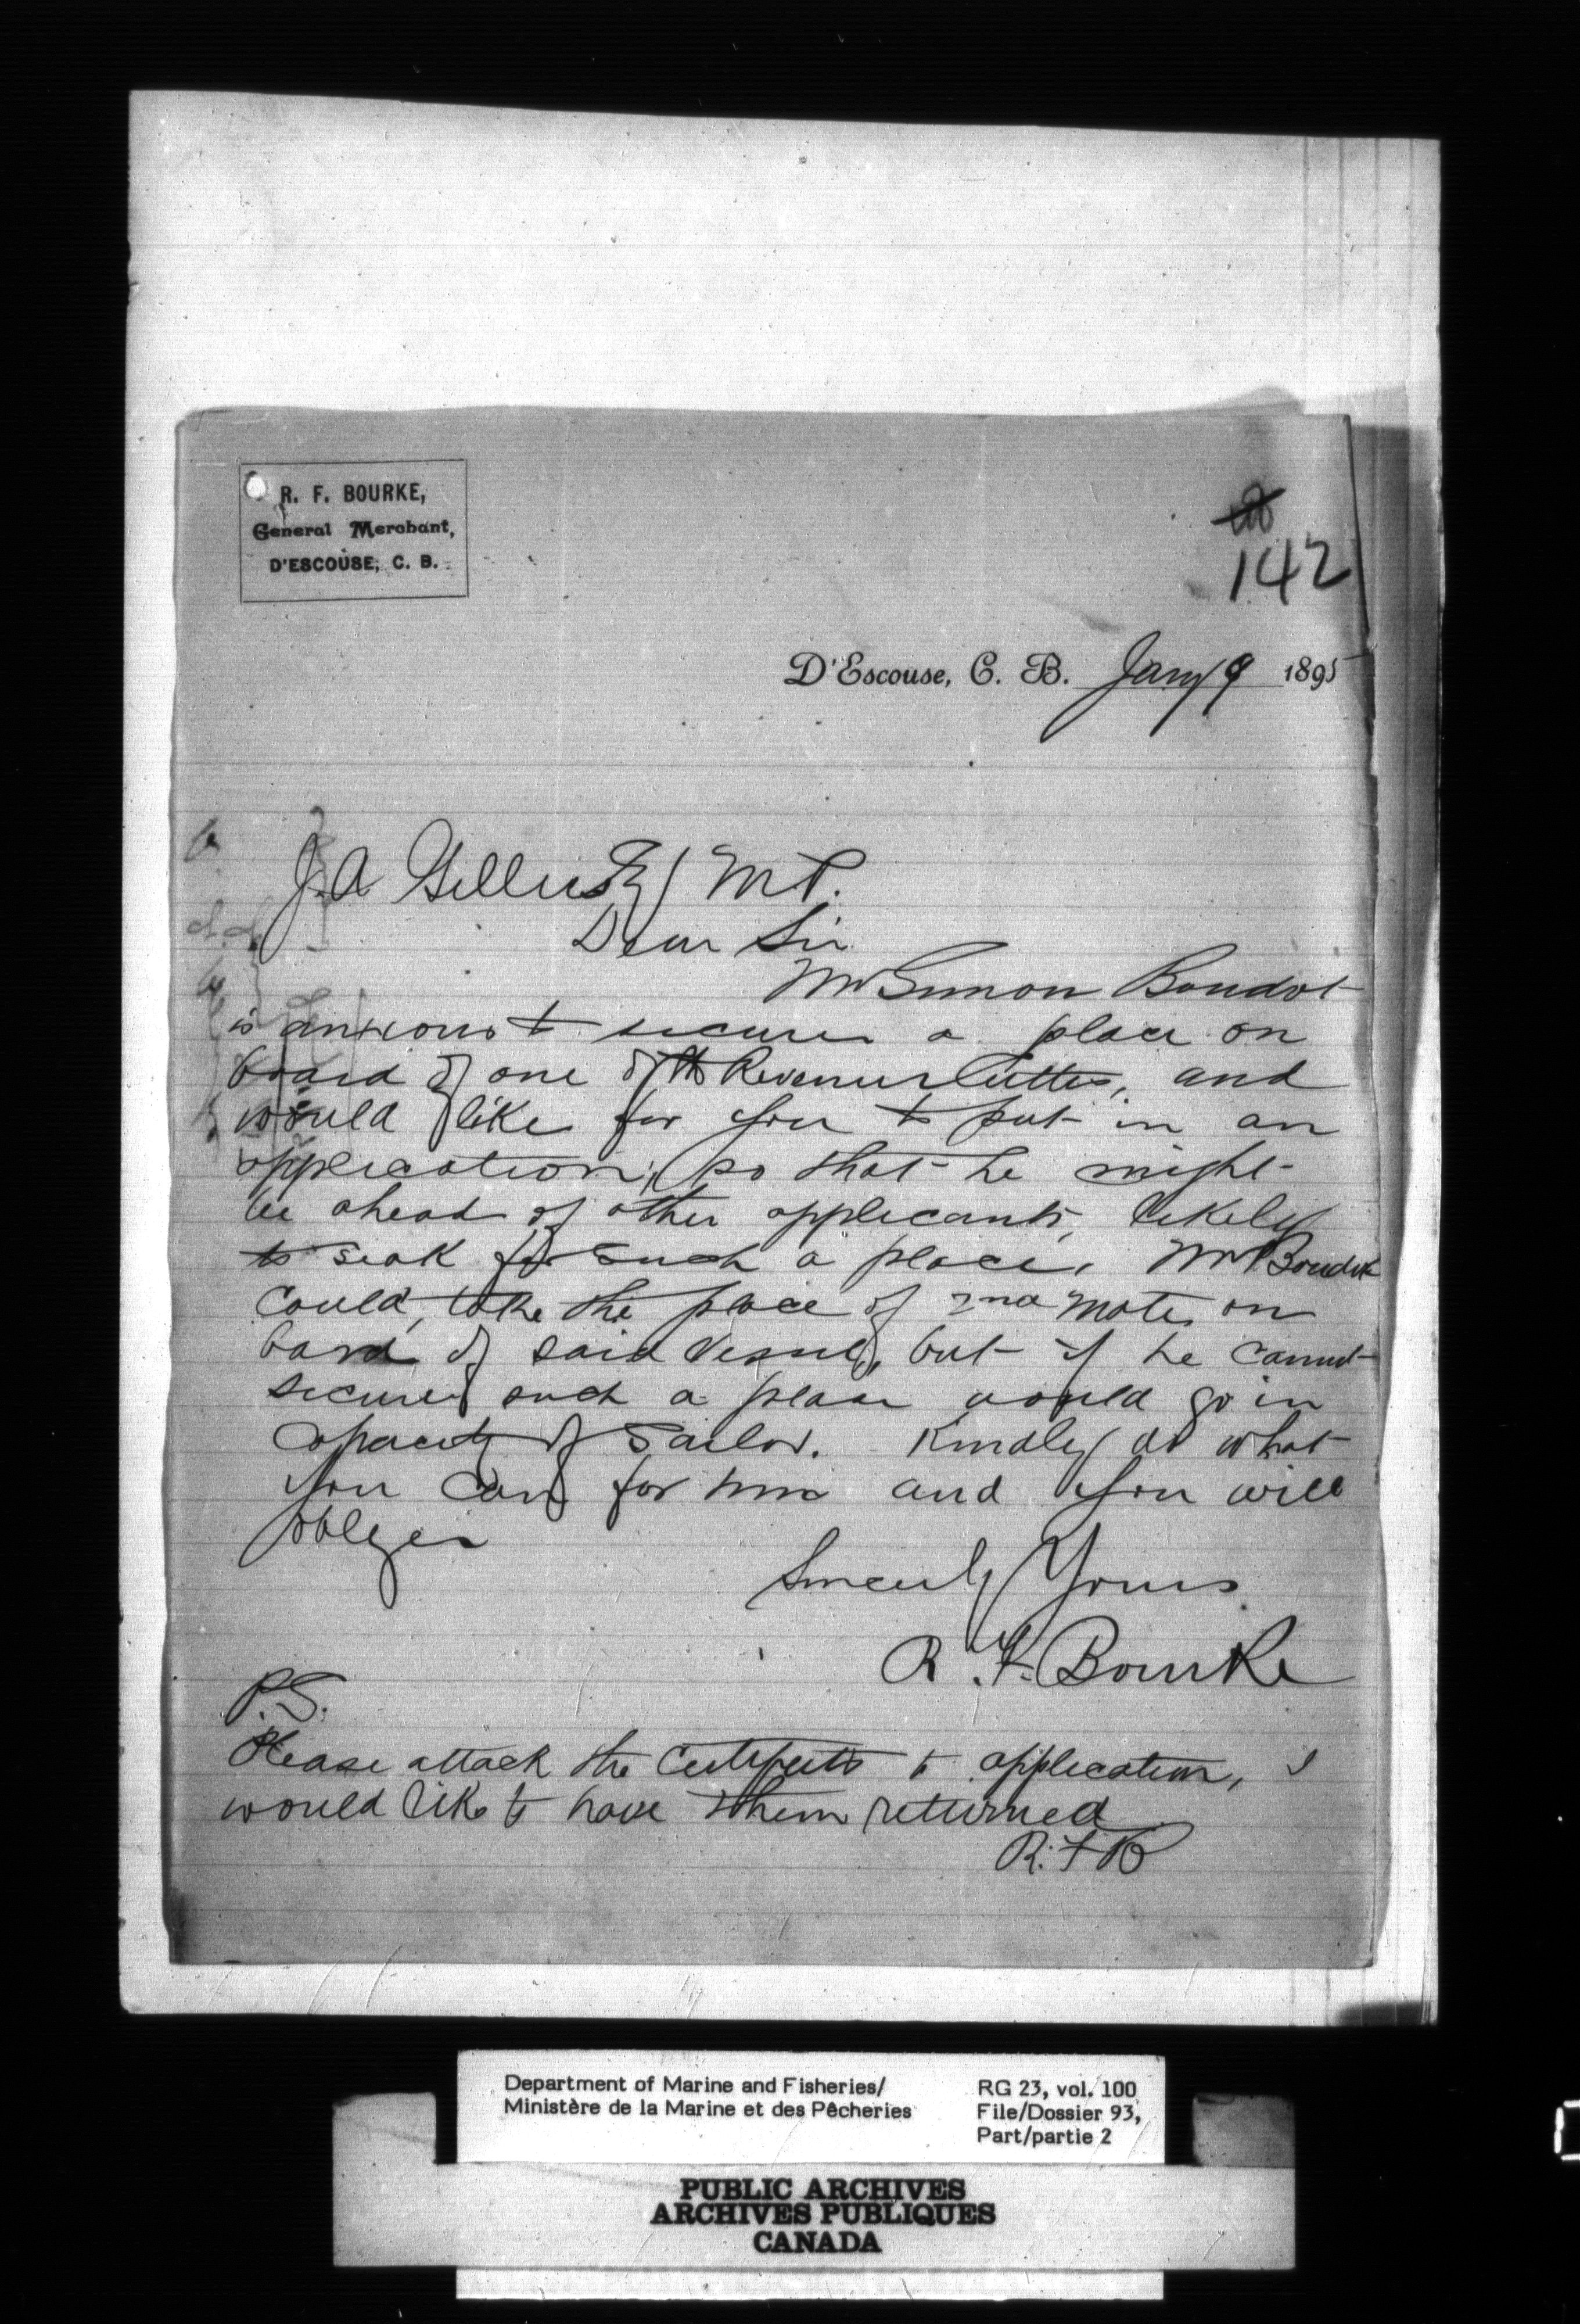 R. F. BOURKE,
General Merchant,
D'ESCOUSE, C. B.
142
D'Escouse, C. B. Jany 9 1895
J. A Gillies Esq M P.
Dear Sir
Mr Simon Boudrot
is anxious to secure a place on
board of one of the Revenue Cutters, and
would like for you to put in an
application, so that he might
be ahead of other applicants, likely
to seak for such a place, Mr Boudrot
could, take the place of 2nd mate on
board of said Vessel, but if he cannot
secure such a place would go in
capacity of Sailor. Kindly do what
you can for him and you will
oblige
Sincerly Yours
R. F. Bourke
P.S.
Please attach the to application, I
would like to have them returned
R. F B
Department of Marine and Fisheries/
Ministère de la Marine et des Pêcheries
RG 23, vol. 100
File/Dossier 93,
Part/partie 2
PUBLIC ARCHIVES
ARCHIVES PUBLIQUES
CANADA